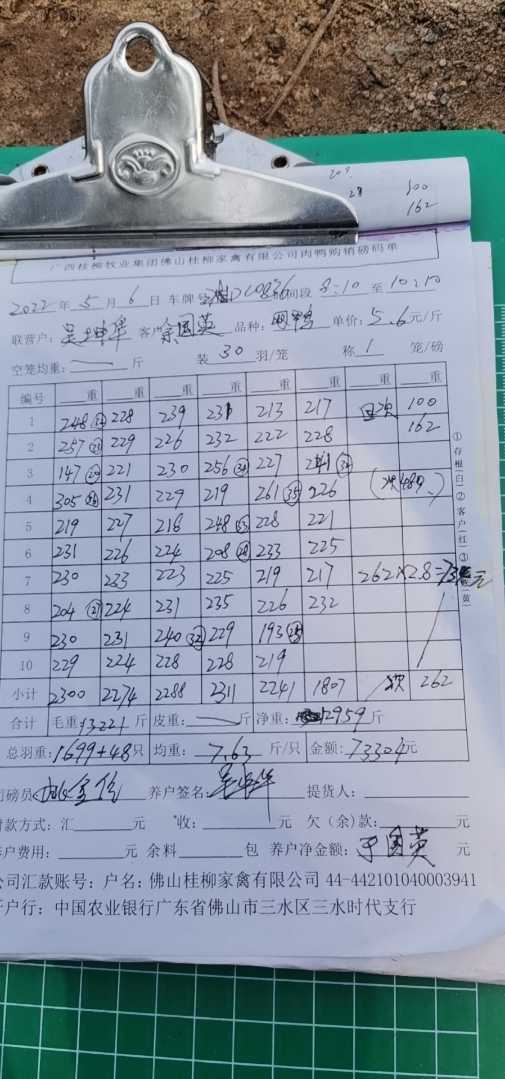 100
28 162
广西桂柳牧业集团佛山桂柳家禽有限公司肉鸭购销磅码单
2022年5月6日 车牌号 间段 8:10 至 10:10
联营户: 客户 余国英 品种: 单价: 5.6元/斤
空笼均重: 斤 装 30 羽/笼 称 1 笼/磅
编号 重 重 重 重 重 重 重 重
1 248 228 239 231 213 217 100
2 257 229 226 232 222 228 162
3 147 221 230 256 227 241
4 305 231 229 219 261 (35) 226 (次48只)
5 219 227 218 248 228 221
6 231 226 224 208 (28) 233 225
7 230 233 223 225 219 217 262×2.8= 元
8 204 (27) 224 231 235 226 232
9 230 231 240 (32) 229 193 (25)
10 229 224 228 228 219
小计 2300 2274 2288 2311 2241 1807 次 262
合计 毛重: 13221 斤 皮重: 斤 净重: 12959 斤
总羽重: 1699+48只 均重: 7.63 斤/只 金额: 73304元
磅员 养户签名: 提货人:
付款方式: 汇 元 收: 元 欠(余)款: 元
养户费用: 元 余料 包 养户净金额: 元
公司汇款账号: 户名: 佛山桂柳家禽有限公司 44-442101040003941
开户行: 中国农业银行广东省佛山市三水区三水时代支行
①存根(白)②客户(红)③ (黄)